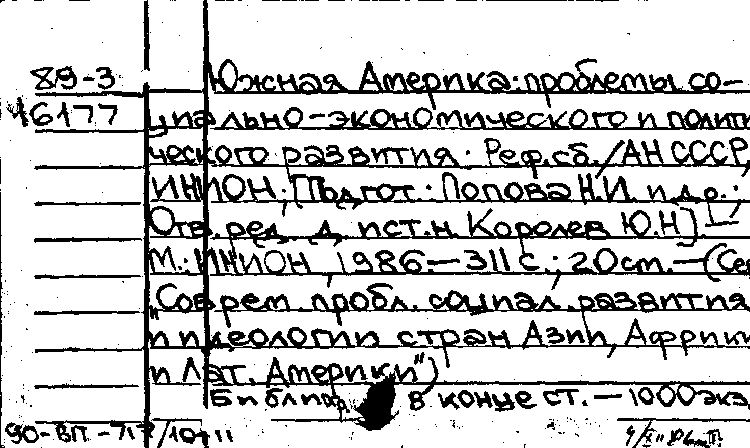 89-3
Южная Америка: проблемы со-
46177
циально-экономического и полити
ческого развития: Реф.сб./АН СССР,
ИНИОН; [Подгот.: Попова Н.И. и др.;
Отв. ред. д. ист.н. Королев Ю.Н] —
М.: ИНИОН, 1986.—311 с.; 20 см.—(Сер
„Соврем. пробл. социал. развития
и идеологии стран Азии, Африки
и Лат. Америки")
Библиогр. в конце ст. — 1000 экз
90-ВП-